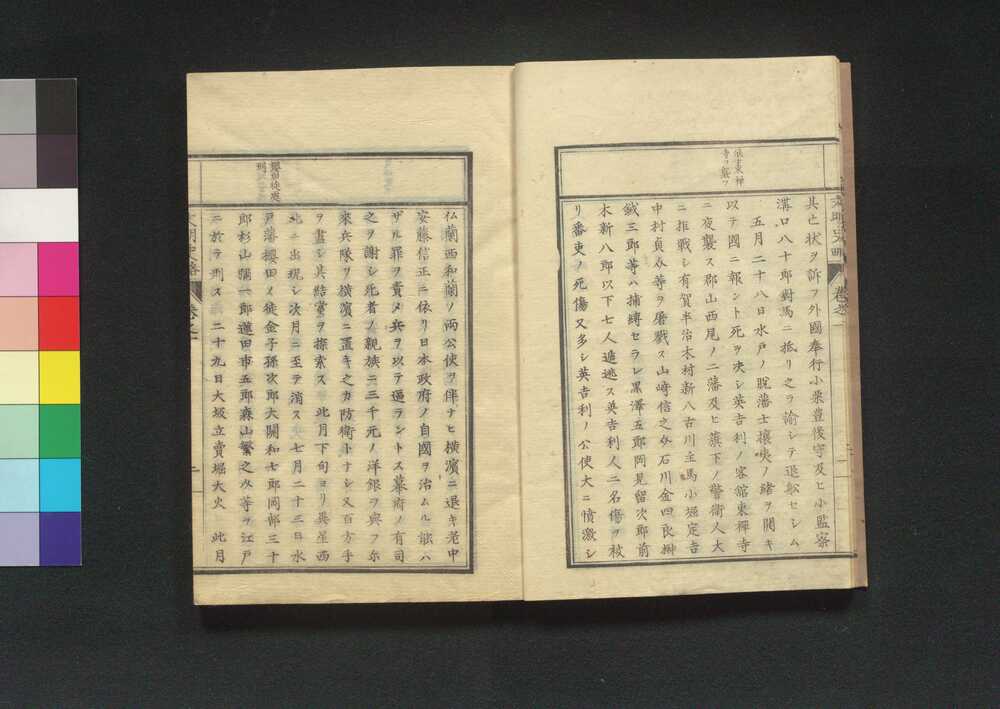 浪士東禪
寺ヲ襲フ
其亡状ヲ訴フ外國奉行小栗豊後守及ヒ小監察
溝口八十郎對馬ニ抵リ之ヲ諭シテ退舩セシム
五月二十八日水戸ノ脱藩士攘夷ノ諸ヲ開キ
以テ國ニ報ント死ヲ决シ英吉利ノ客舘東禪寺
ニ夜襲ス郡山西尾ノ二藩及ヒ旗下ノ警衛人大
ニ拒戰シ有賀半治木村新八古川主馬小堀定吉
中村貞等ヲ屠戮ス山﨑信之石川金四良榊
鉞三郎等ハ捕縛セラレ黒澤五郎岡見留次郎前
木新八郎以下七人遁逃ス英吉利人二名傷ヲ被
リ番吏ノ死傷又多シ英吉利ノ公使大ニ憤激シ
仏蘭西和蘭ノ兩公使ヲ伴ナヒ横濱ニ退キ老中
安藤信正ニ依リ日本政府ノ自國ヲ治ムル能ハ
ザル罪ヲ責メ兵ヲ以テ逼ラントス幕府ノ有司
之ヲ謝シ死者ノ親族ニ三千元ノ洋銀ヲ與フ尓
來兵隊リ横濱ニ置キ之カ防衛トナシ又百方手
ヲ盡シ其結黨ヲ探索ス 此月下旬ヨリ異星西
北ニ出現シ次月ニ至テ消ス 七月二十三日水
戸藩櫻田ノ徒金子孫次郎大關和七郎岡部三十
郎杉山彌一郎蓮田市五郎森山繁之等ヲ江戸
ニ於テ刑ス 二十九日大坂立賣堀大火 此月